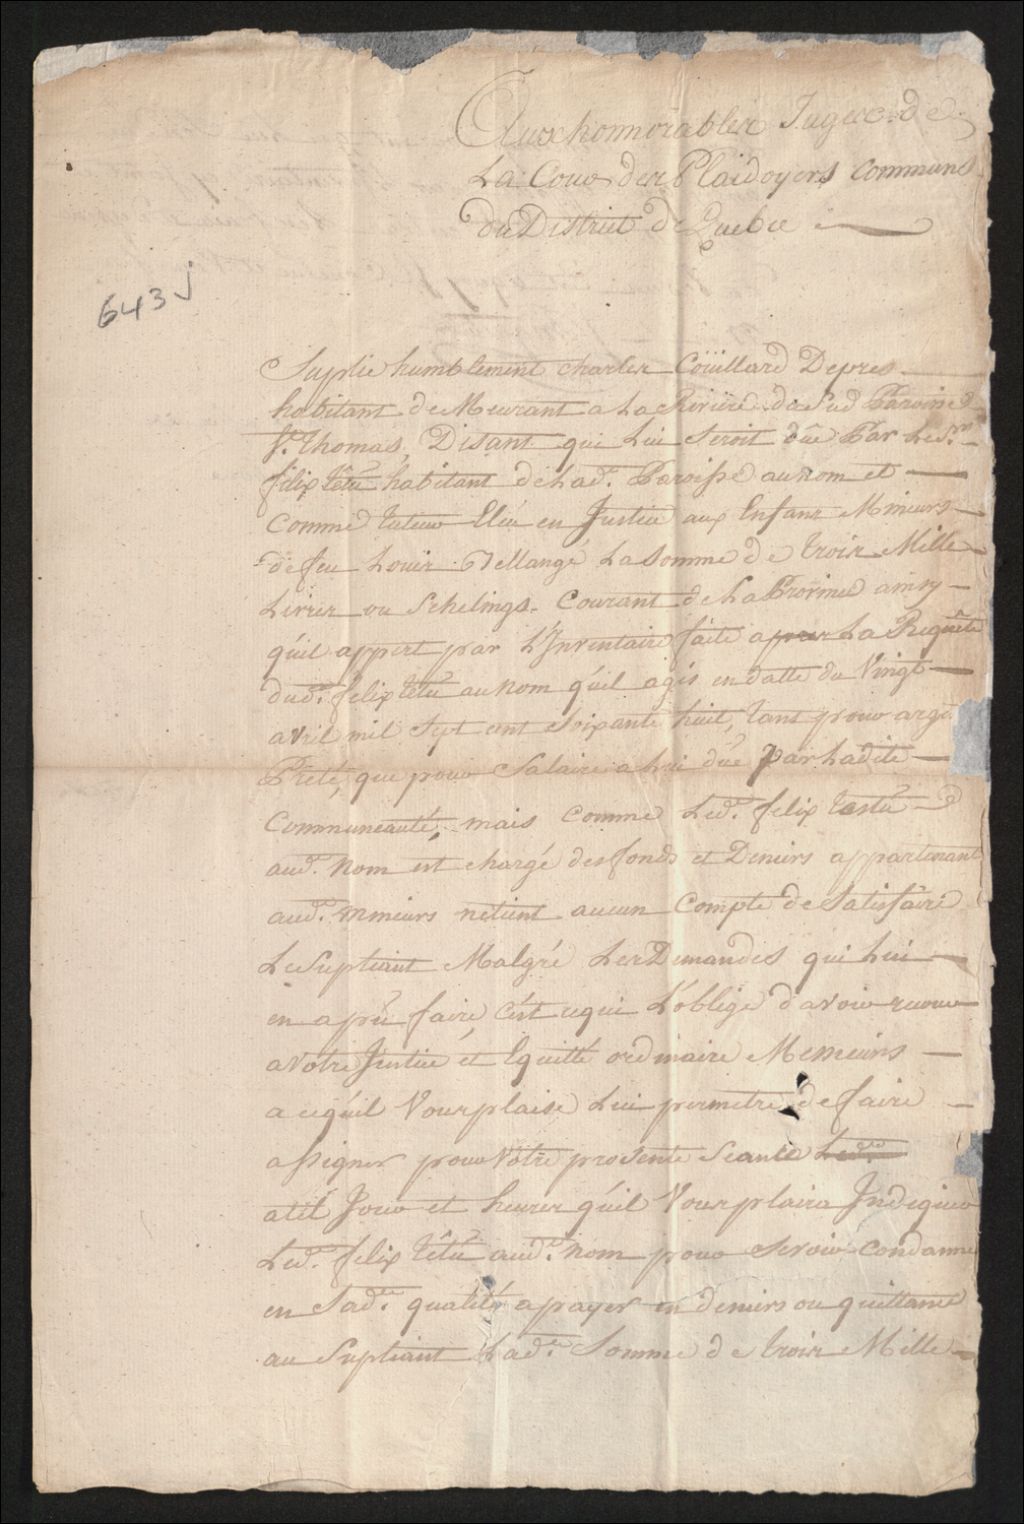 Aux honnorables Juges de
La Cour des Plaidoyers communs
du District de Quebec
643 j
Suplie humblement charles Coüillard Depres
habitant de Meurant a La Riviere du Sud Paroisse
St. Thomas, Disant qui Lui seroit dûe Par Le Sr.
felix têtu habitant de Lad. Paroisse au nom et
comme tuteur Eleu en Justice aux Enfans Mineurs
de feu Louis Bellangé La somme de trois Mille
Livres ou Schelings Courant de La Province ainsy
qu'il appert par L'Inventaire faite a La Requête
dud. felix têtu au nom qu'il agis en datte du Vingt
avril mil sept cent soixante huit, tant pour argt.
Preté, que pour Salaire a Lui dûe par Ladite
Communeauté, mais comme Led. felix testu
aud. nom est chargé des fonds et Deniers appartenant
aud. mineurs netient aucun Compte de Satisfaire
Le Supliant Malgré Les Demandes qui Lui
en a peu faire, c'est ce qui L'oblige d'avoir recour
a votre Justice et Equitté ordinaire Messieurs
a ce qu'il Vous plaise Lui permetre de faire
assigner pour Votre presente Seance Led.
a tel Jour et heures qu'il Vous plaira Indiquer
Led. felix têtu aud. nom pour se voir condamne
en Sad. qualité a payer en deniers ou quittance
au Supliant Lad. Somme de trois Mille